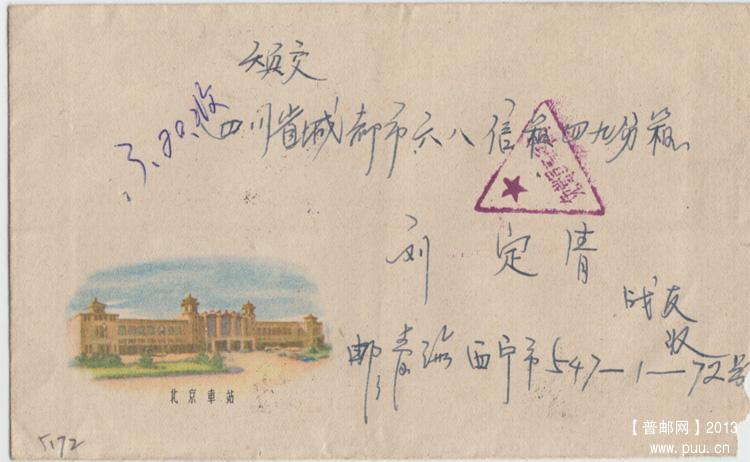 烦交
3.20.收
四川省城都市六八信箱四九分箱
刘定清
战友
收
邮青海西宁市547—1—72号
北京車站
5.172
【普邮网】2013
www.puu.cn